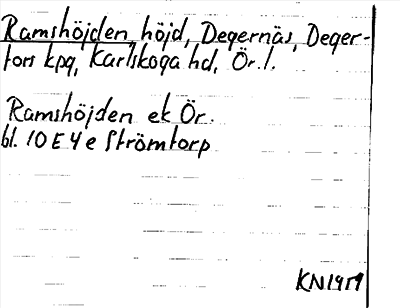 Ramshöjden, höjd, Degernäs, Deger-
fors kpg, Karlskoga hd, Ör. l.
Ramshöjden ek Ör.
bl. 10 E 4 e Strömtorp